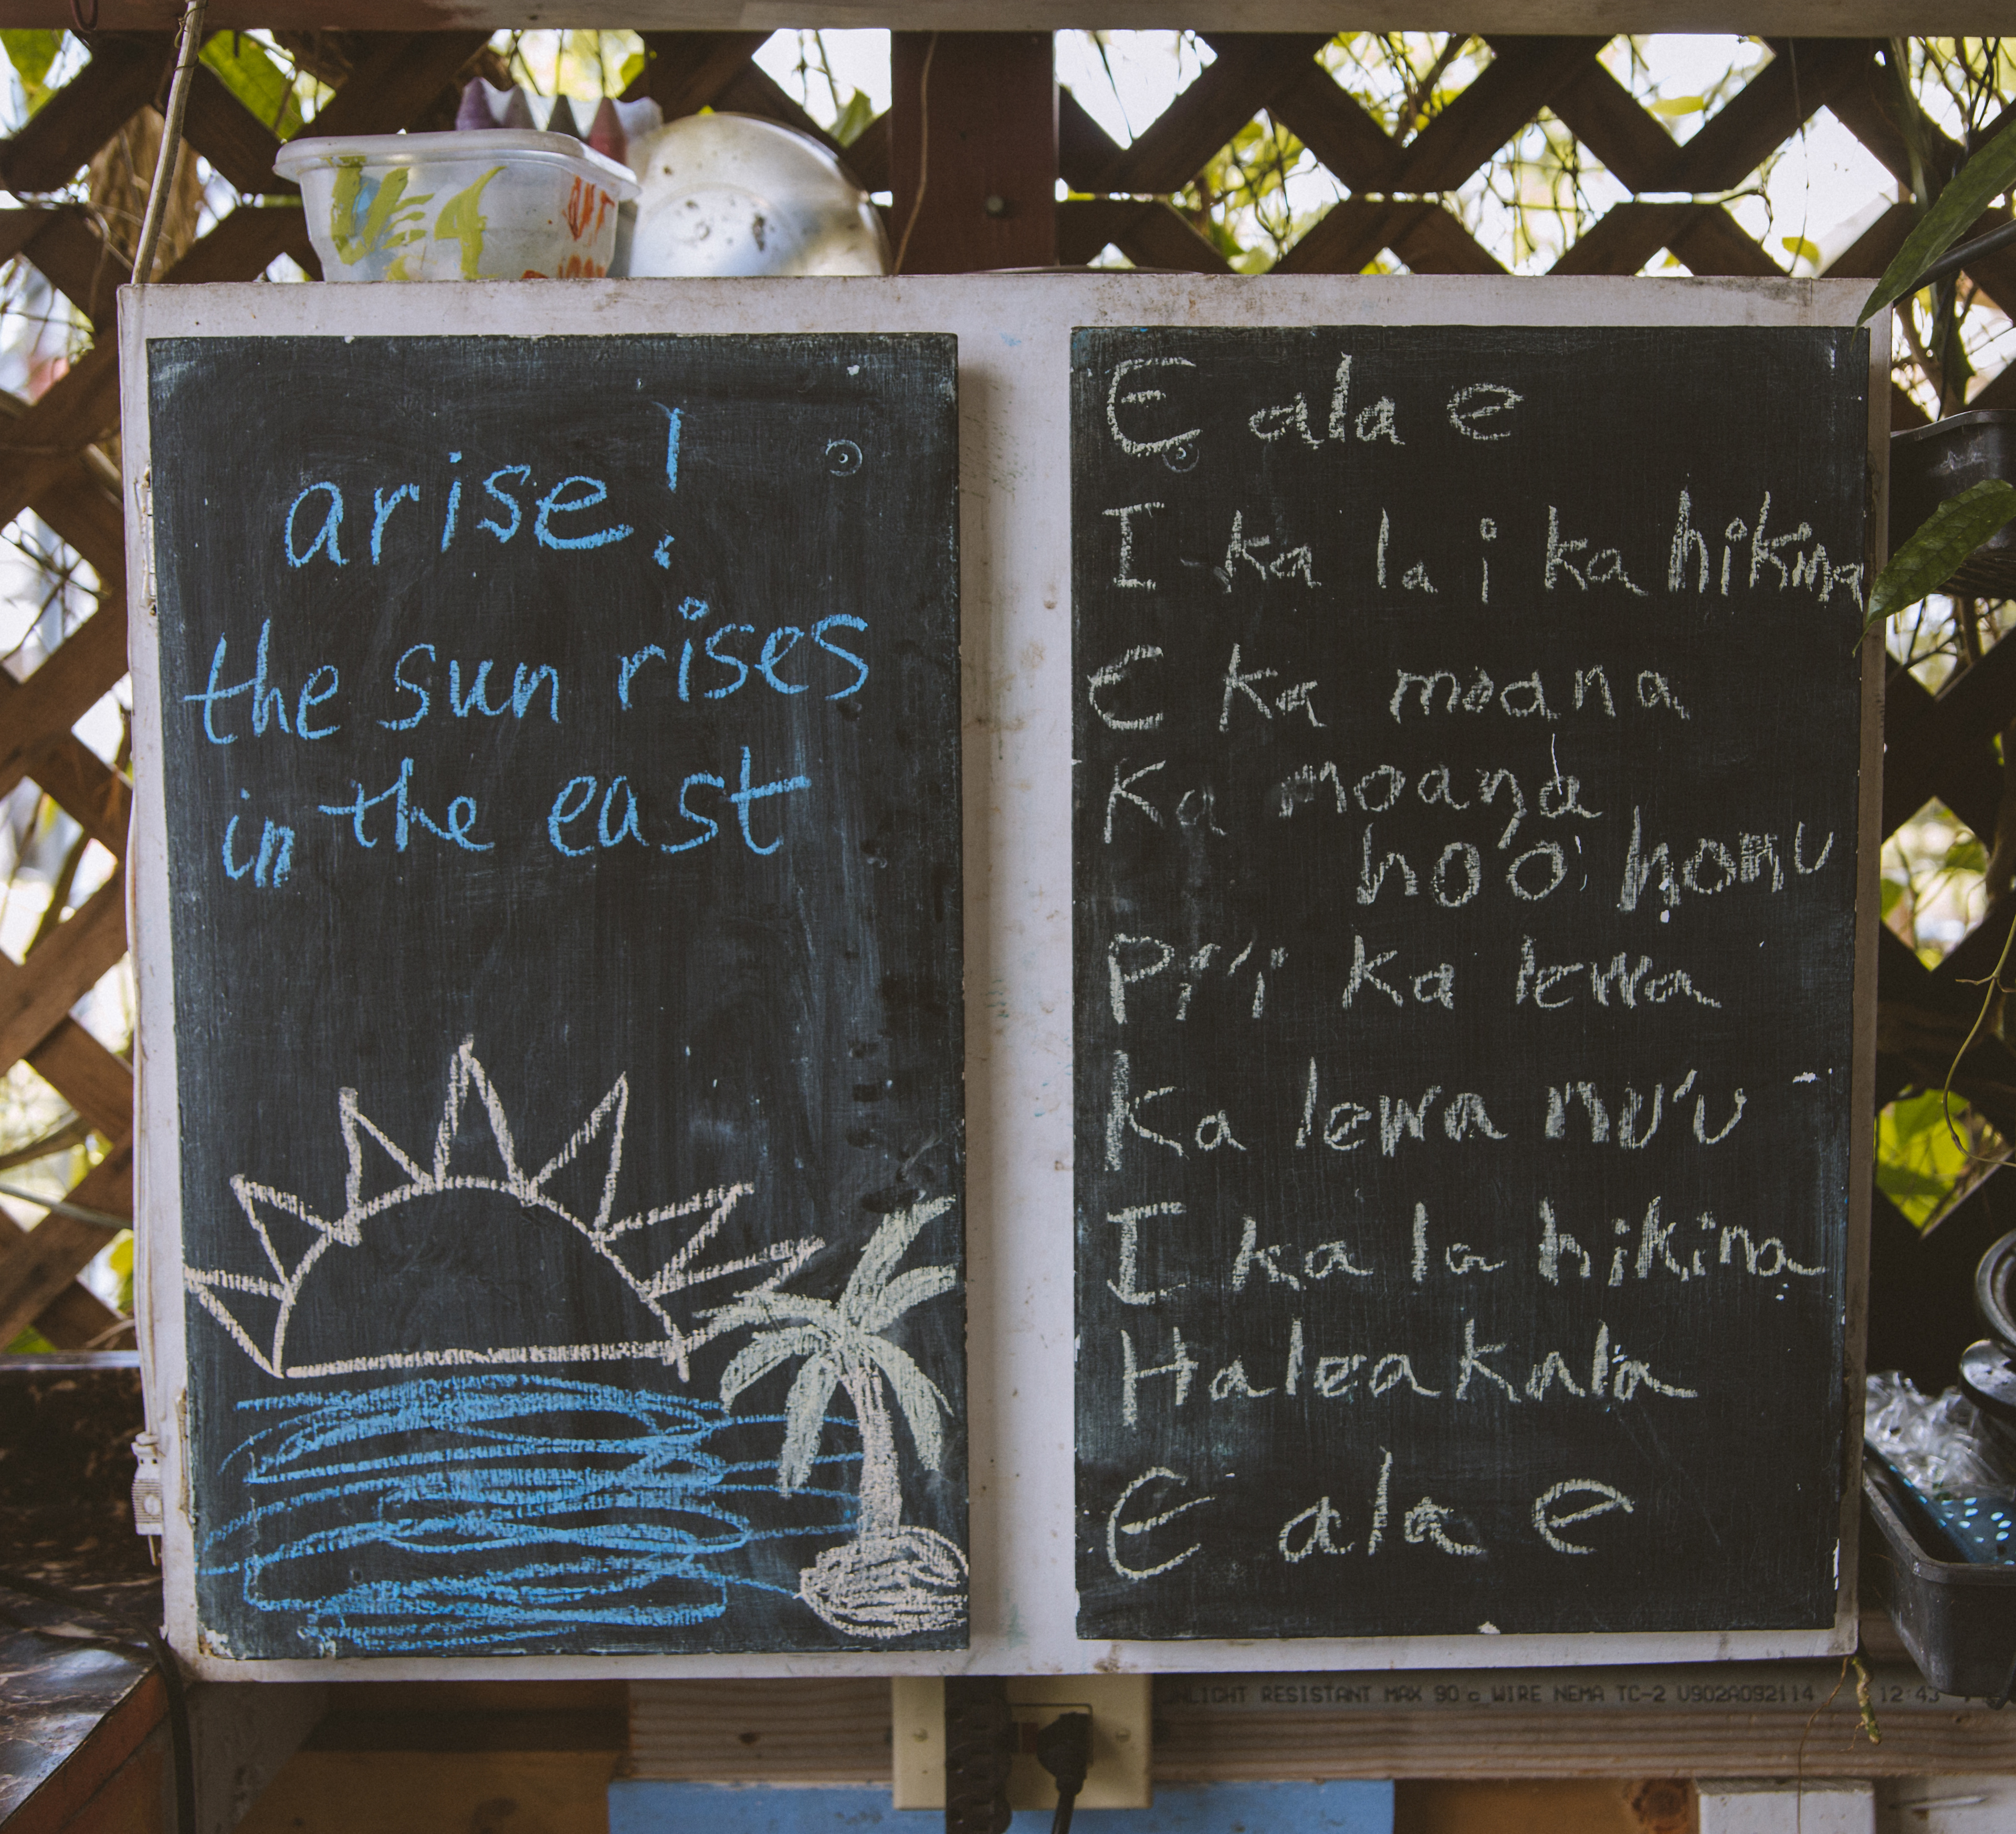 arise!
the sun rises
in the east
E ala e
I ka la i ka hikina
E ka moana
Ka moana
ho'o honu
Pi'i ka lewa
Ka lewa nu'u
I ka la hikina
Haleakala
E ala e
NLIGHT RESISTANT MAX 90 c WIRE NEMA TC-2 U902A092114 12:43